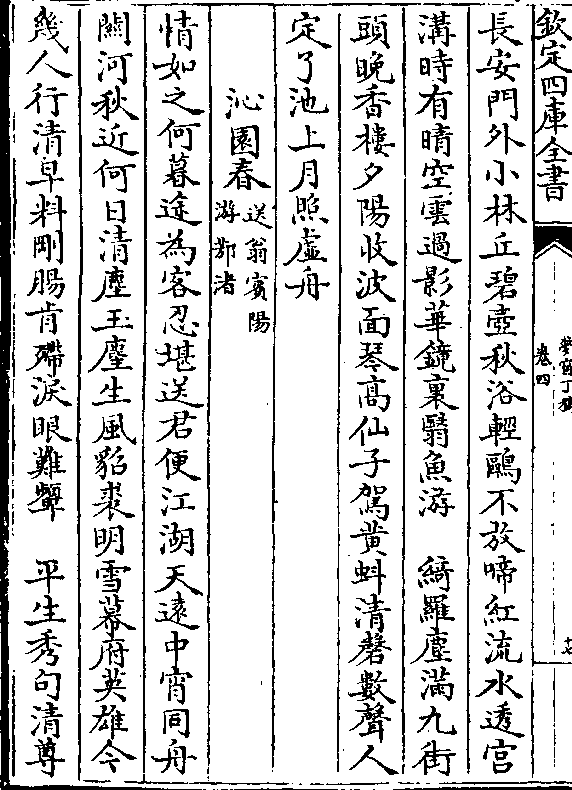 欽定四庫全書
卷四
長安門外小林丘碧壺秋浴輕鷗不放啼紅流水透宮
溝時有晴空雲過影華鏡裏翳魚游　綺羅塵滿九街
頭晚香樓夕陽收波面琴髙仙子駕黄蚪清磬數聲人
定了池上月照虛舟
沁園春
送翁賓陽
游鄂渚
情如之何暮途為客忍堪送君便江湖天遠中宵同舟
闗河秋近何日清塵玉麈生風貂裘明雪幕府英雄今
幾人行清早料剛腸肯殢淚眼難顰　平生秀句清尊